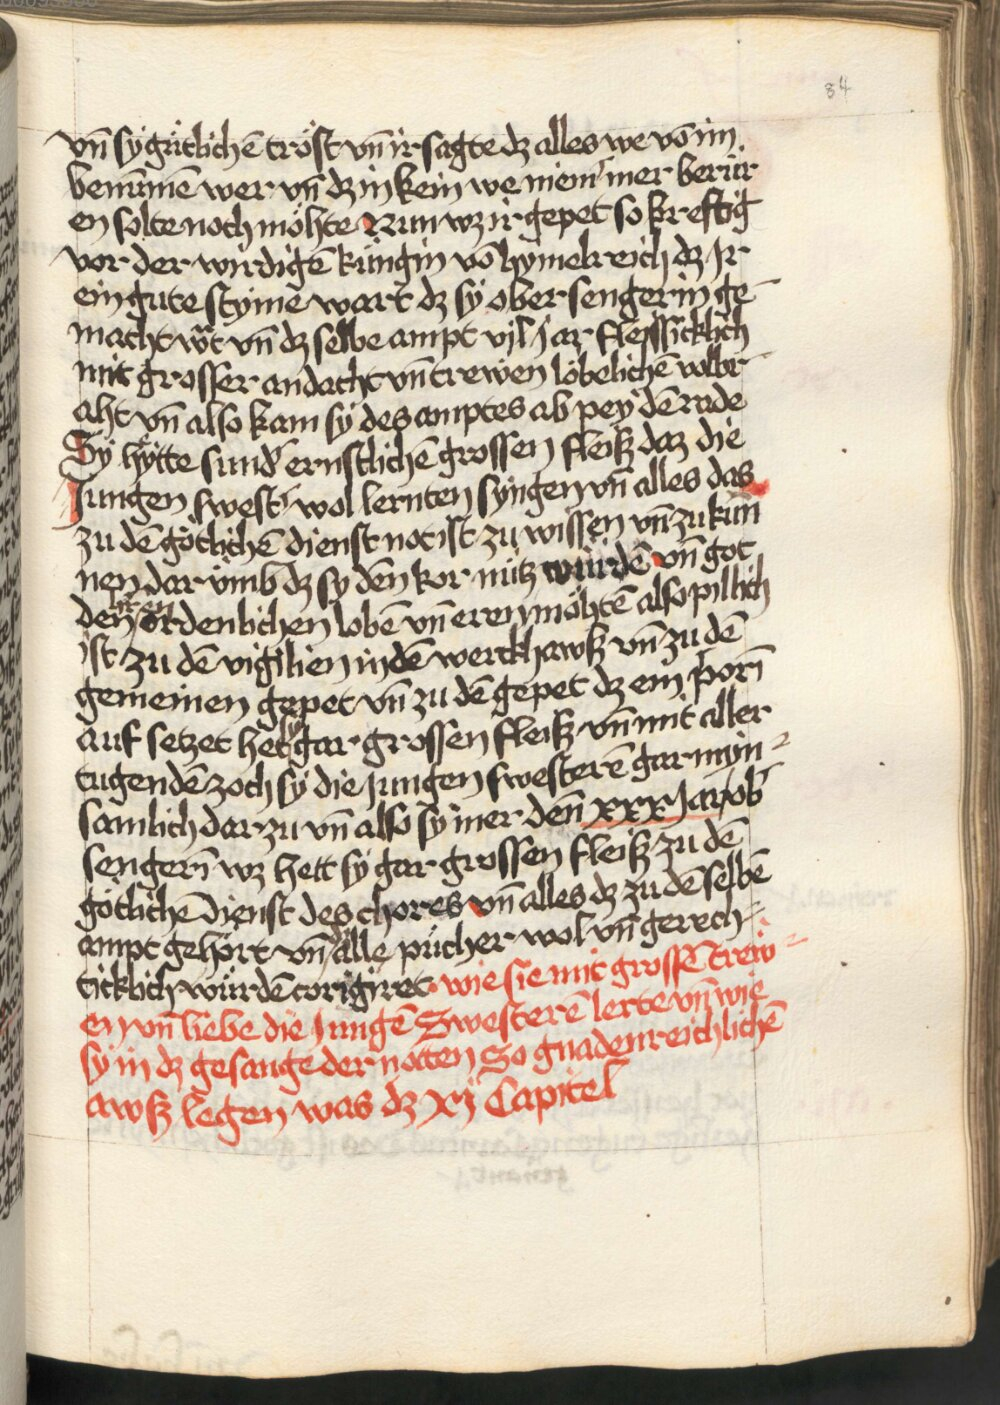 34
vn̄ sy gütlichē tröst vn̄ ir sagte dz alles we vō im
benūmē wer vn̄ dz in kein we niem̄ mer berür
en solte noch möhte Nun wz ir gepet so kreftig
vor der wirdigē küngin vō hymelreich dz Ir
ein gute styme wart dz sy ober sengerin ge
macht wͦt vn̄ dz selbe ampt vil Jar fleissicklich
mit grosser andacht vn̄ trewen löbelichē volbr
aht vn̄ also kam sy des amptes ab pey dē rade
Sy hette sund' ernstlichē grossen fleiß daz die
Jungen swest' wol lernten syngen vn̄ alles das
zu dē götlichē dienst not ist zu wissen vn̄ zu kün
nen dar vmb dz sy den kor nütz würdē vn̄ got
den hren ördenlichen lobē vn̄ eren möhtē also pillich
ist zu dē vigilien in dē werckhawß vn̄ zu dē
gemeinen gepet vn̄ zu dē gepet dz ein porī
auf setzet het sy gar grossen fleiß vn̄ mit aller
tugendē zoch sy die Jungen swesterē gar myn
samlich dar zu vn̄ also sy mer den̄ xxx Jar ob'
sengerī wz hett sy gar grossen fleiß zu dē
götlichē dienst des chores vn̄ alles dz zu dē selbē
ampt gehört vn̄ dz alle pücher wol vn̄ gerech
ticklich würdē corigiret wie sie mit grossē trew
en vn̄ liebe die Jungē Swesterē lerte vn̄ wie
sy in dz gesange der notten So gnadenreichlichē
awß legen was dz xj Capitel